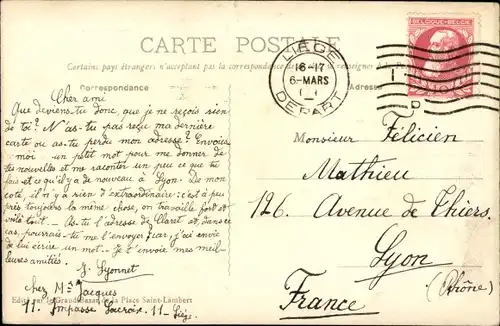 BELGIQUE-BELGIË
CARTE POSTALE
LIÈGE
16-17
6-MARS
DEPART
Certains pays étrangers n'acceptent pas la correspondance
Correspondance
Adresse
Cher ami
Que deviens-tu donc que je ne reçois rien
de toi? N'as-tu pas reçu ma dernière
carte ou as-tu perdu mon adresse? Envoies
moi un petit mot pour me donner de
tes nouvelles et me raconter un peu ce que tu
fais et ce qu'il y a de nouveau à Lyon. De mon
coté, il n'y a rien d'extraordinaire: c'est à peu
près toujours la même chose, on travaille fort et
voilà tout - As-tu l'adresse de Claret et, dans ce
cas, pourrais-tu me l'envoyer car j'ai envie
de lui écrire un mot. - Je t'envoie mes meil-
leures amitiés.
J. Lyonnet
chez Mr Jacques
11. Impasse 11 - Liège
Edité par le Grand Bazar de la Place Saint-Lambert
Monsieur Félicien
Mathieu
126. Avenue de Thiers.
Lyon
(Rhône)
France